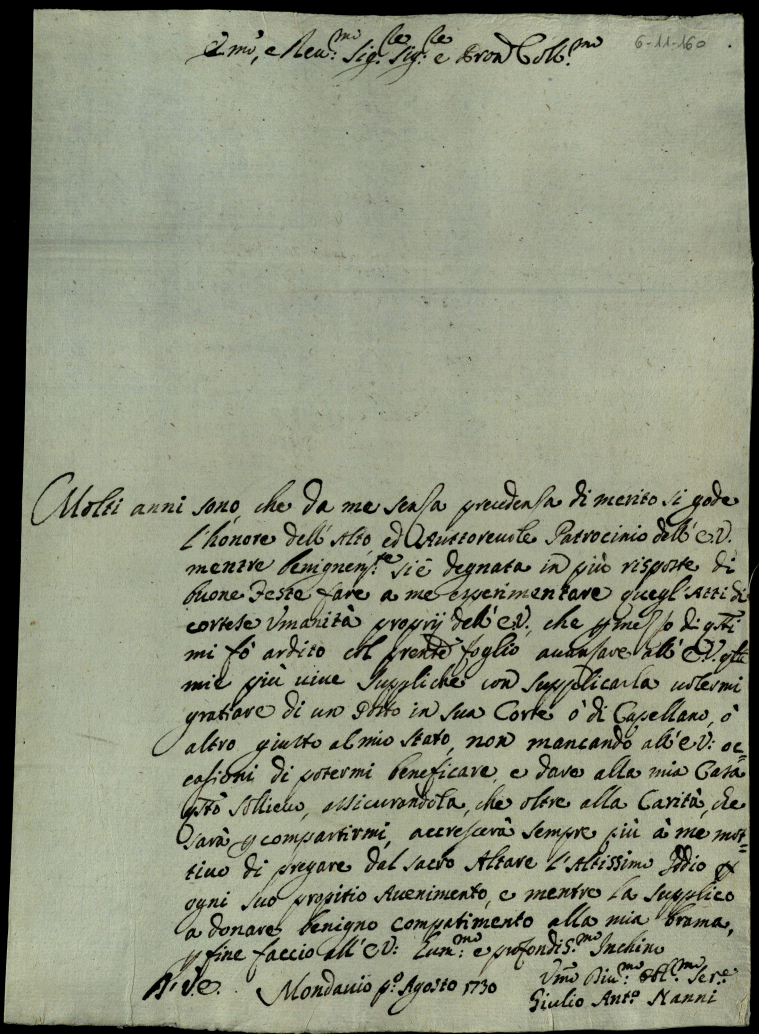 Emo, e Reu.mo Sig.re Sig.re e Pron Coll.mo
6-11-160
Molti anni sono, che da me senza precedenza di merito si gode
l'honore dell'Alto ed Auttoreuole Patrocinio dell'E.V.
mentre benignem.te si è degnata in più risposte di
buone Feste fare a me esperimentare quegl'Atti di
cortese Vmanità proprij dell'E.V., che p mezzo di qsti
mi fò ardito col pnte foglio auanzare all'E.V. qste
mie più uiue suppliche con supplicarla uolermi
gratiare di un Posto in sua Corte ò di Capellano, ò
altro giusto al mio stato, non mancando all'E.V: oc=
casioni di potermi beneficare, e dare alla mia Casa
qsto sollieuo, assicurandola, che oltre alla Carità, che
sarà p compartirmi, accrescerà sempre più à me mot=
tiuo di pregare dal sacro Altare l'Altissimo Iddio p
ogni suo propitio Auenimento, e mentre la supplico
a donare benigno compatimento alla mia brama,
p fine faccio all'E.V: Hum.mo e profondis.mo Inchino
D. V. E. Mondauio p.o Agosto 1730
Vmo Diu.mo Obl.mo Ser.e
Giulio Ant.o Nanni